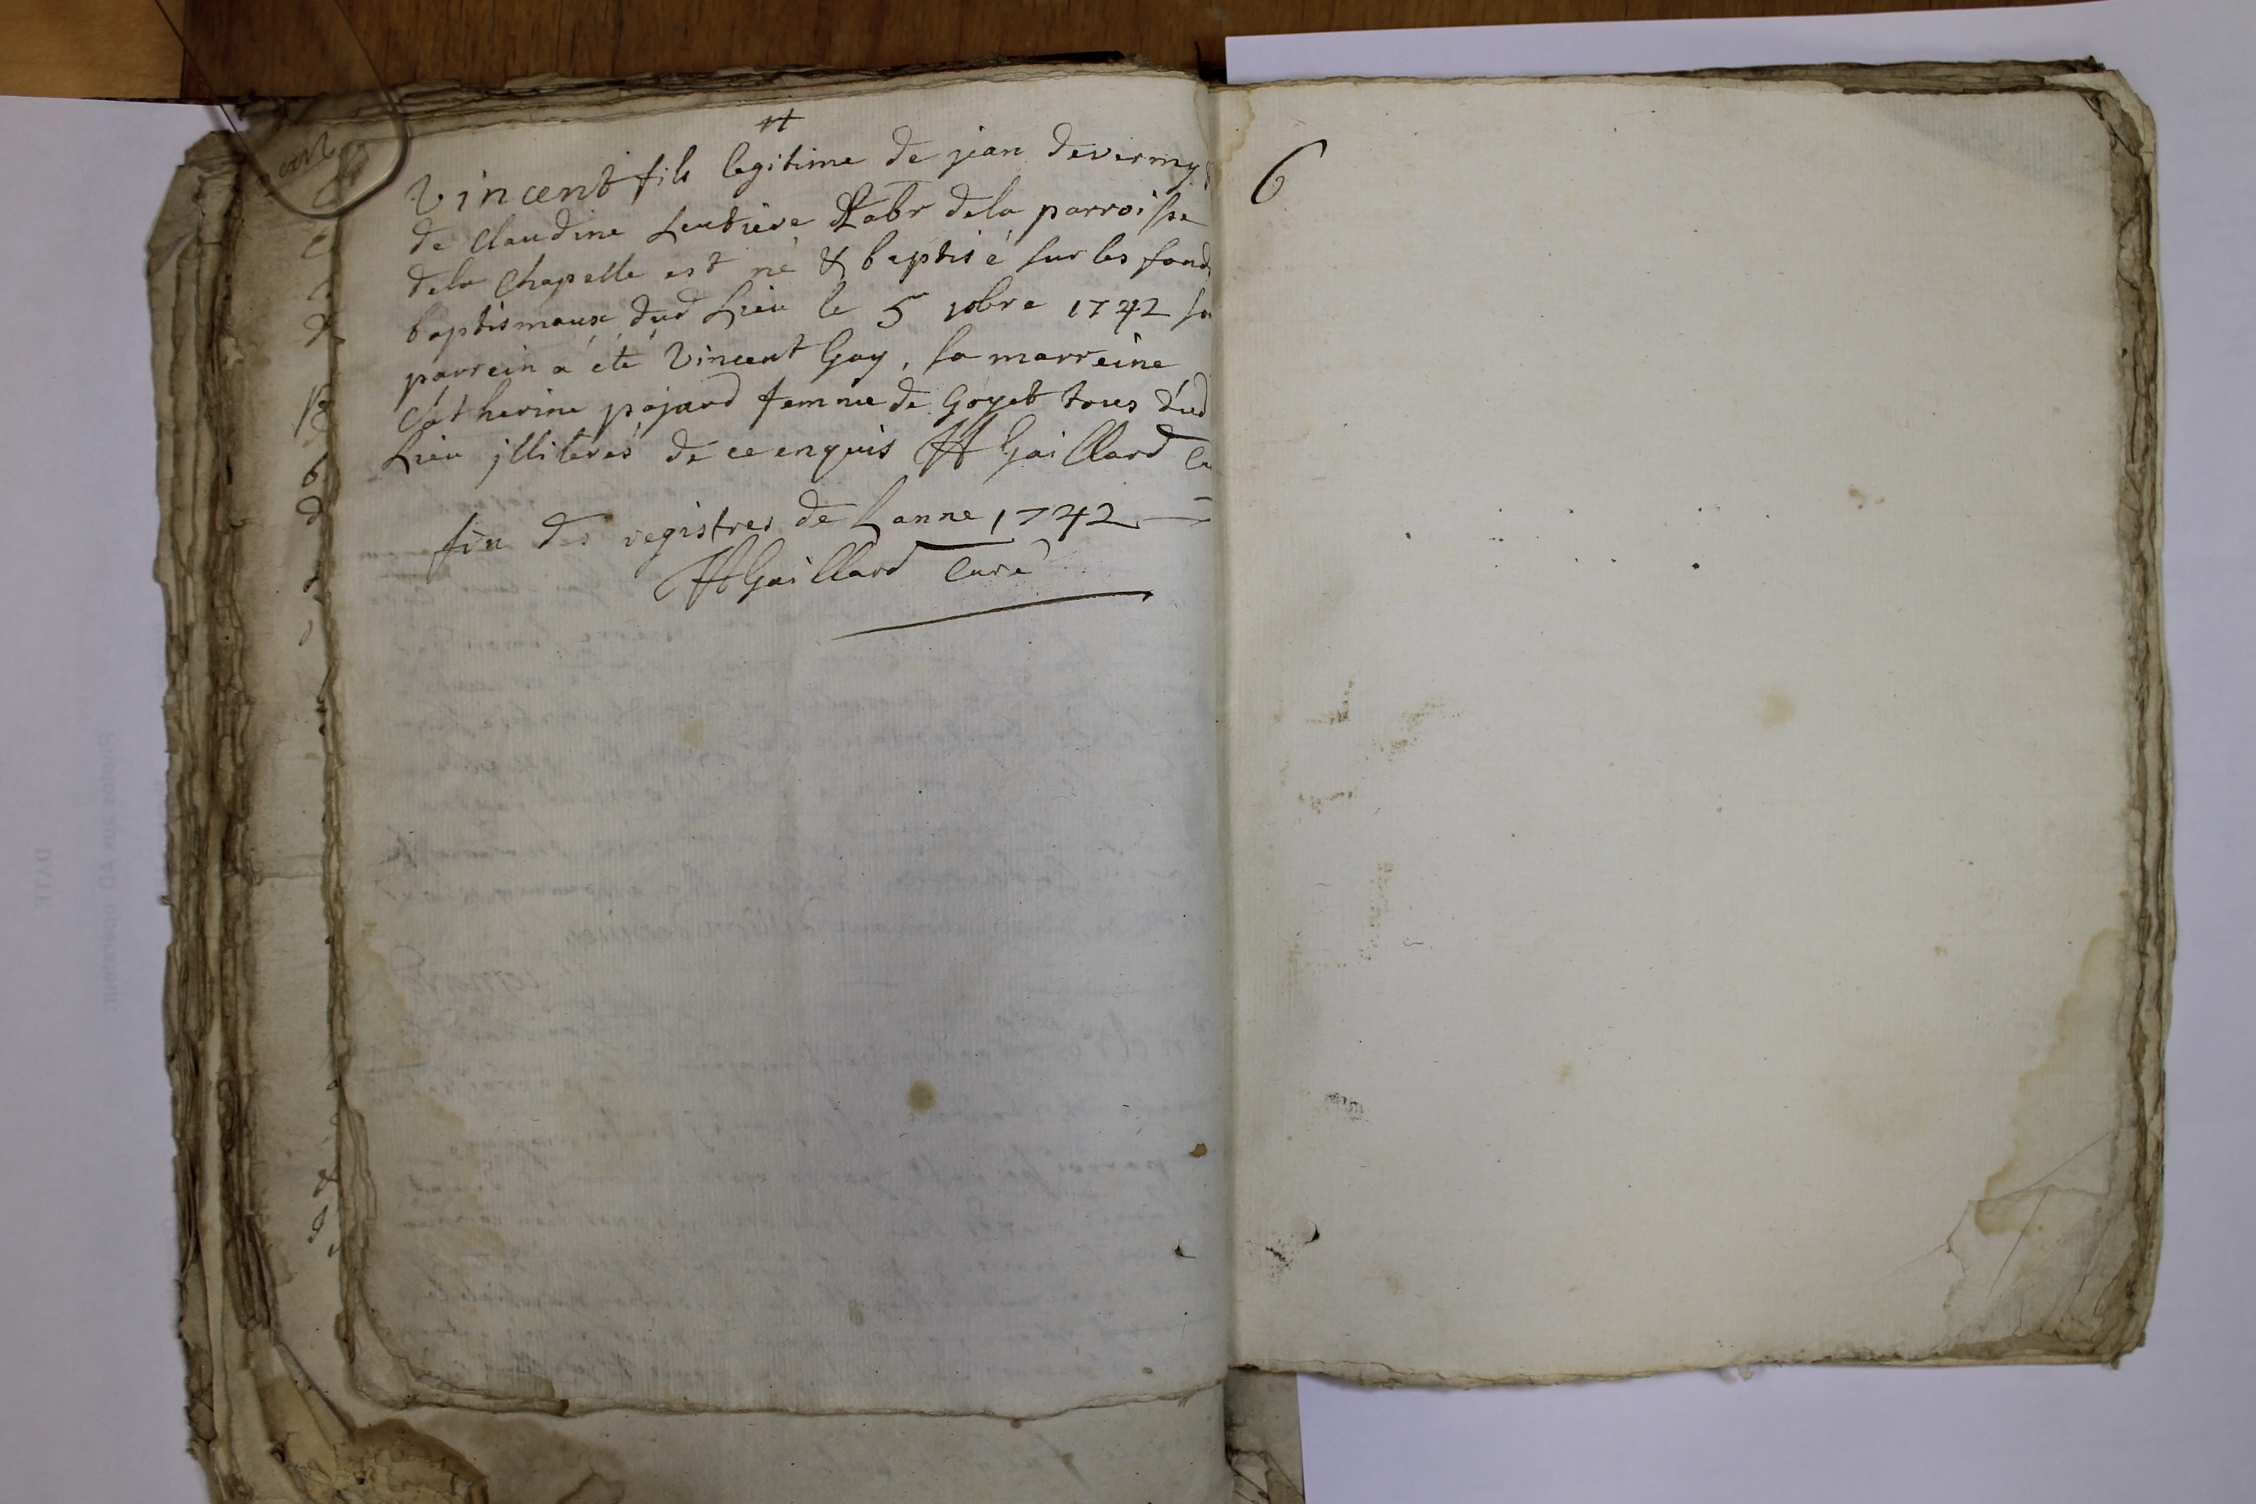 Vincent fils legitime de jean devermy
de Claudine Lentiere Labr dela parroisse
dela Chapelle est né & baptisé sur les fond
baptismaux dud Lieu le 5 xobre 1742 so
parrein a été Vincent Gay, sa marreine
Catherine pajard femme de Goyet tous dud
Lieu jlliterés de ce enquis Gaillard Cu
fin des registres de Lanne 1742
Gaillard Curé
6